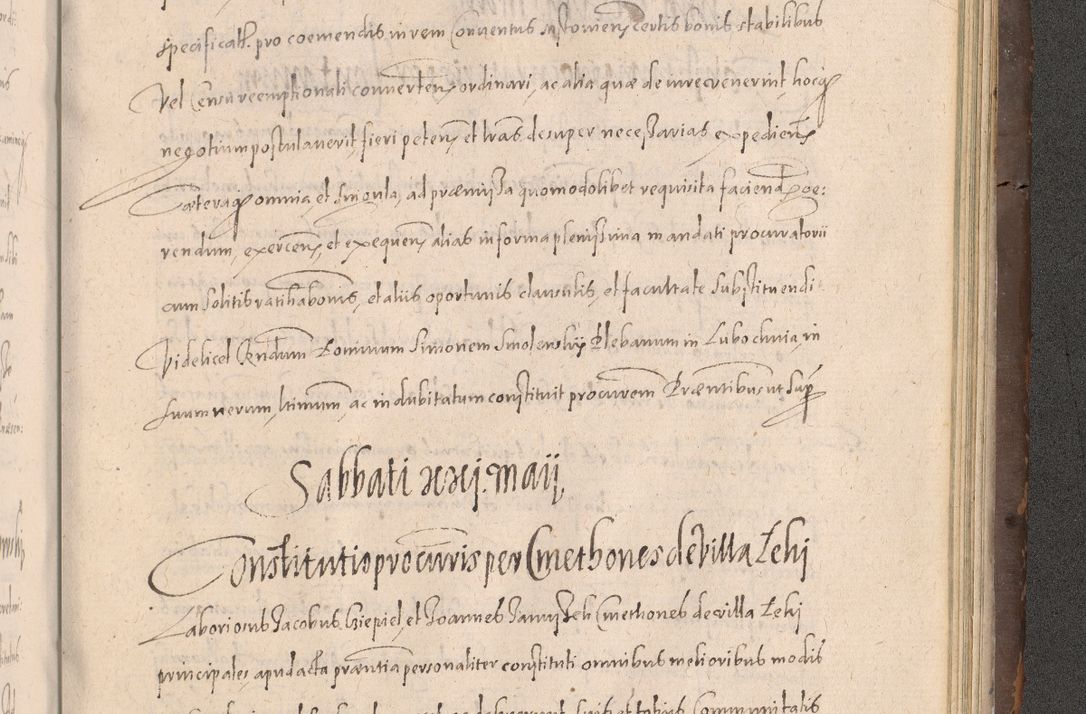 specificatis. pro coemendis in rem Conventus in certis bonis stabilibus
Vel Censu reemptionali converten. ordinari, ac alia quæ de iure evenerint, hocq
negotium postulaverit, fieri peten. et lras desuper necessarias expedien.
Cæteraq omnia et singula, ad præmissa quomodolibet requisita faciend. ge:
rendum, exercen. et exequen. alias in forma plenissima mandati procuratorii
cum solitis ratihabonis, et aliis oportunis clausulis, et facultate substituendi
Videlicet Rndum Dominum Simonem Smolensky Plebanum in Lubochnia, in
suum verum, ltimum, ac indubitatum constituit procurem Præntibus ut supr
Sabbati xxj. Maij,
Constitutio procuris per Cmethones de villa Łeki
Laboriosus Jacobus et Joannes Cmethones de villa Łeki
principales apud acta præntia personaliter constituti omnibus melioribus modis
et totius Communitatis